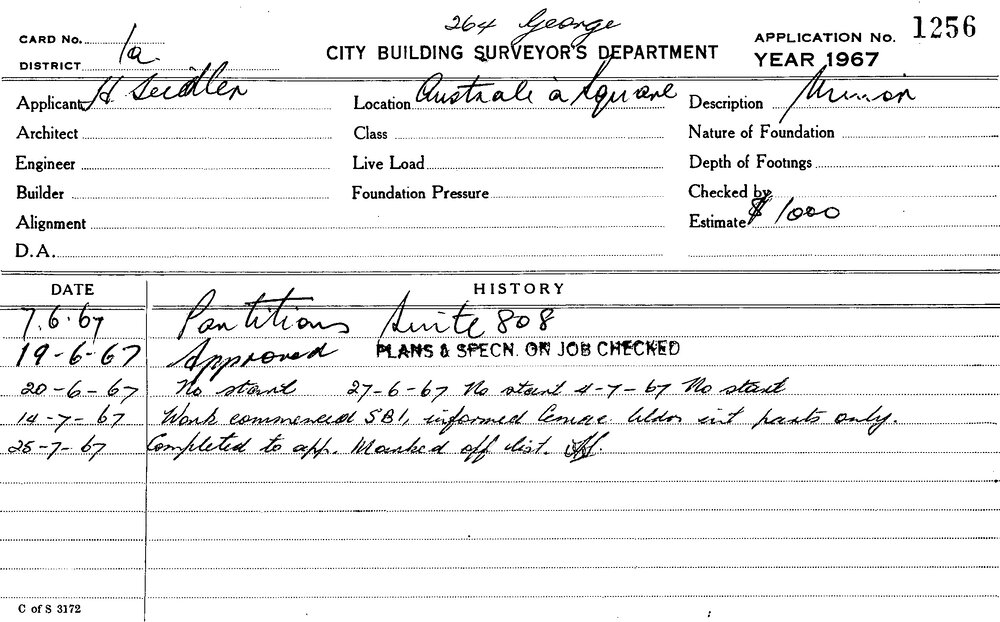 264 George
CARD No. 1a
CITY BUILDING SURVEYOR'S DEPARTMENT
APPLICATION No. 1256
DISTRICT
YEAR 1967
Applicant H Seidler Location Australia Square Description Minor
Architect Class Nature of Foundation
Engineer Live Load Depth of Footings
Builder Foundation Pressure Checked by
Alignment Estimate $ 1000
D.A.
DATE HISTORY
7.6.67 Partitions Suite 808
19-6-67 Approved PLANS & SPECN. ON JOB CHECKED
20-6-67 No start 27-6-67 No start 4-7-67 No start
14-7-67 Work commenced SB1, informed int parts only.
25-7-67 Completed to app. Marked off list.
C of S 3172